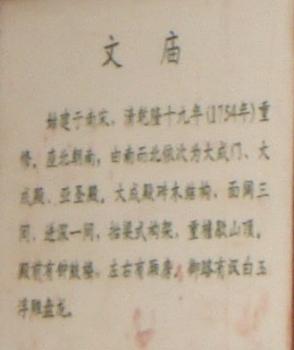 文 庙
始建于南宋，清乾隆十九年(1754年)重
修。座北朝南，由南而北依次为大成门、大
成殿、亚圣殿。大成殿砖木结构，面阔三
间，进深一间，抬梁式构架，重檐歇山顶。
殿前有钟鼓楼，左右有厢房，御路有汉白玉
浮雕盘龙。